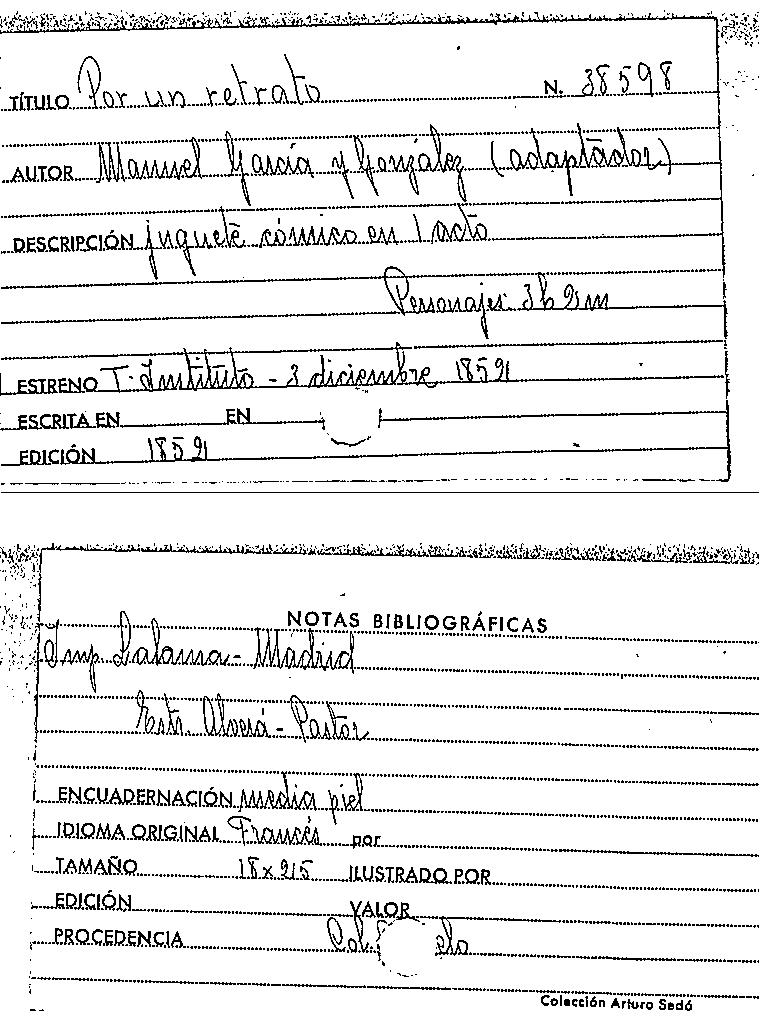 TÍTULO Por un retrato N. 38598
AUTOR Manuel García y González (adaptador)
DESCRIPCIÓN juguete cómico en 1 acto
Personajes: 3h 2m
ESTRENO T. Instituto - 3 diciembre 1852
ESCRITA EN EN
EDICIÓN 1852
NOTAS BIBLIOGRÁFICAS
Imp. Lalama - Madrid
Estr. Alverá - Pastor
ENCUADERNACIÓN media piel
IDIOMA ORIGINAL Francés por
TAMAÑO 18 x 25 ILUSTRADO POR
EDICIÓN VALOR
PROCEDENCIA Col.
Colección Arturo Sedó